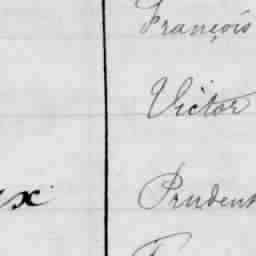 François
Victor
x Prudent